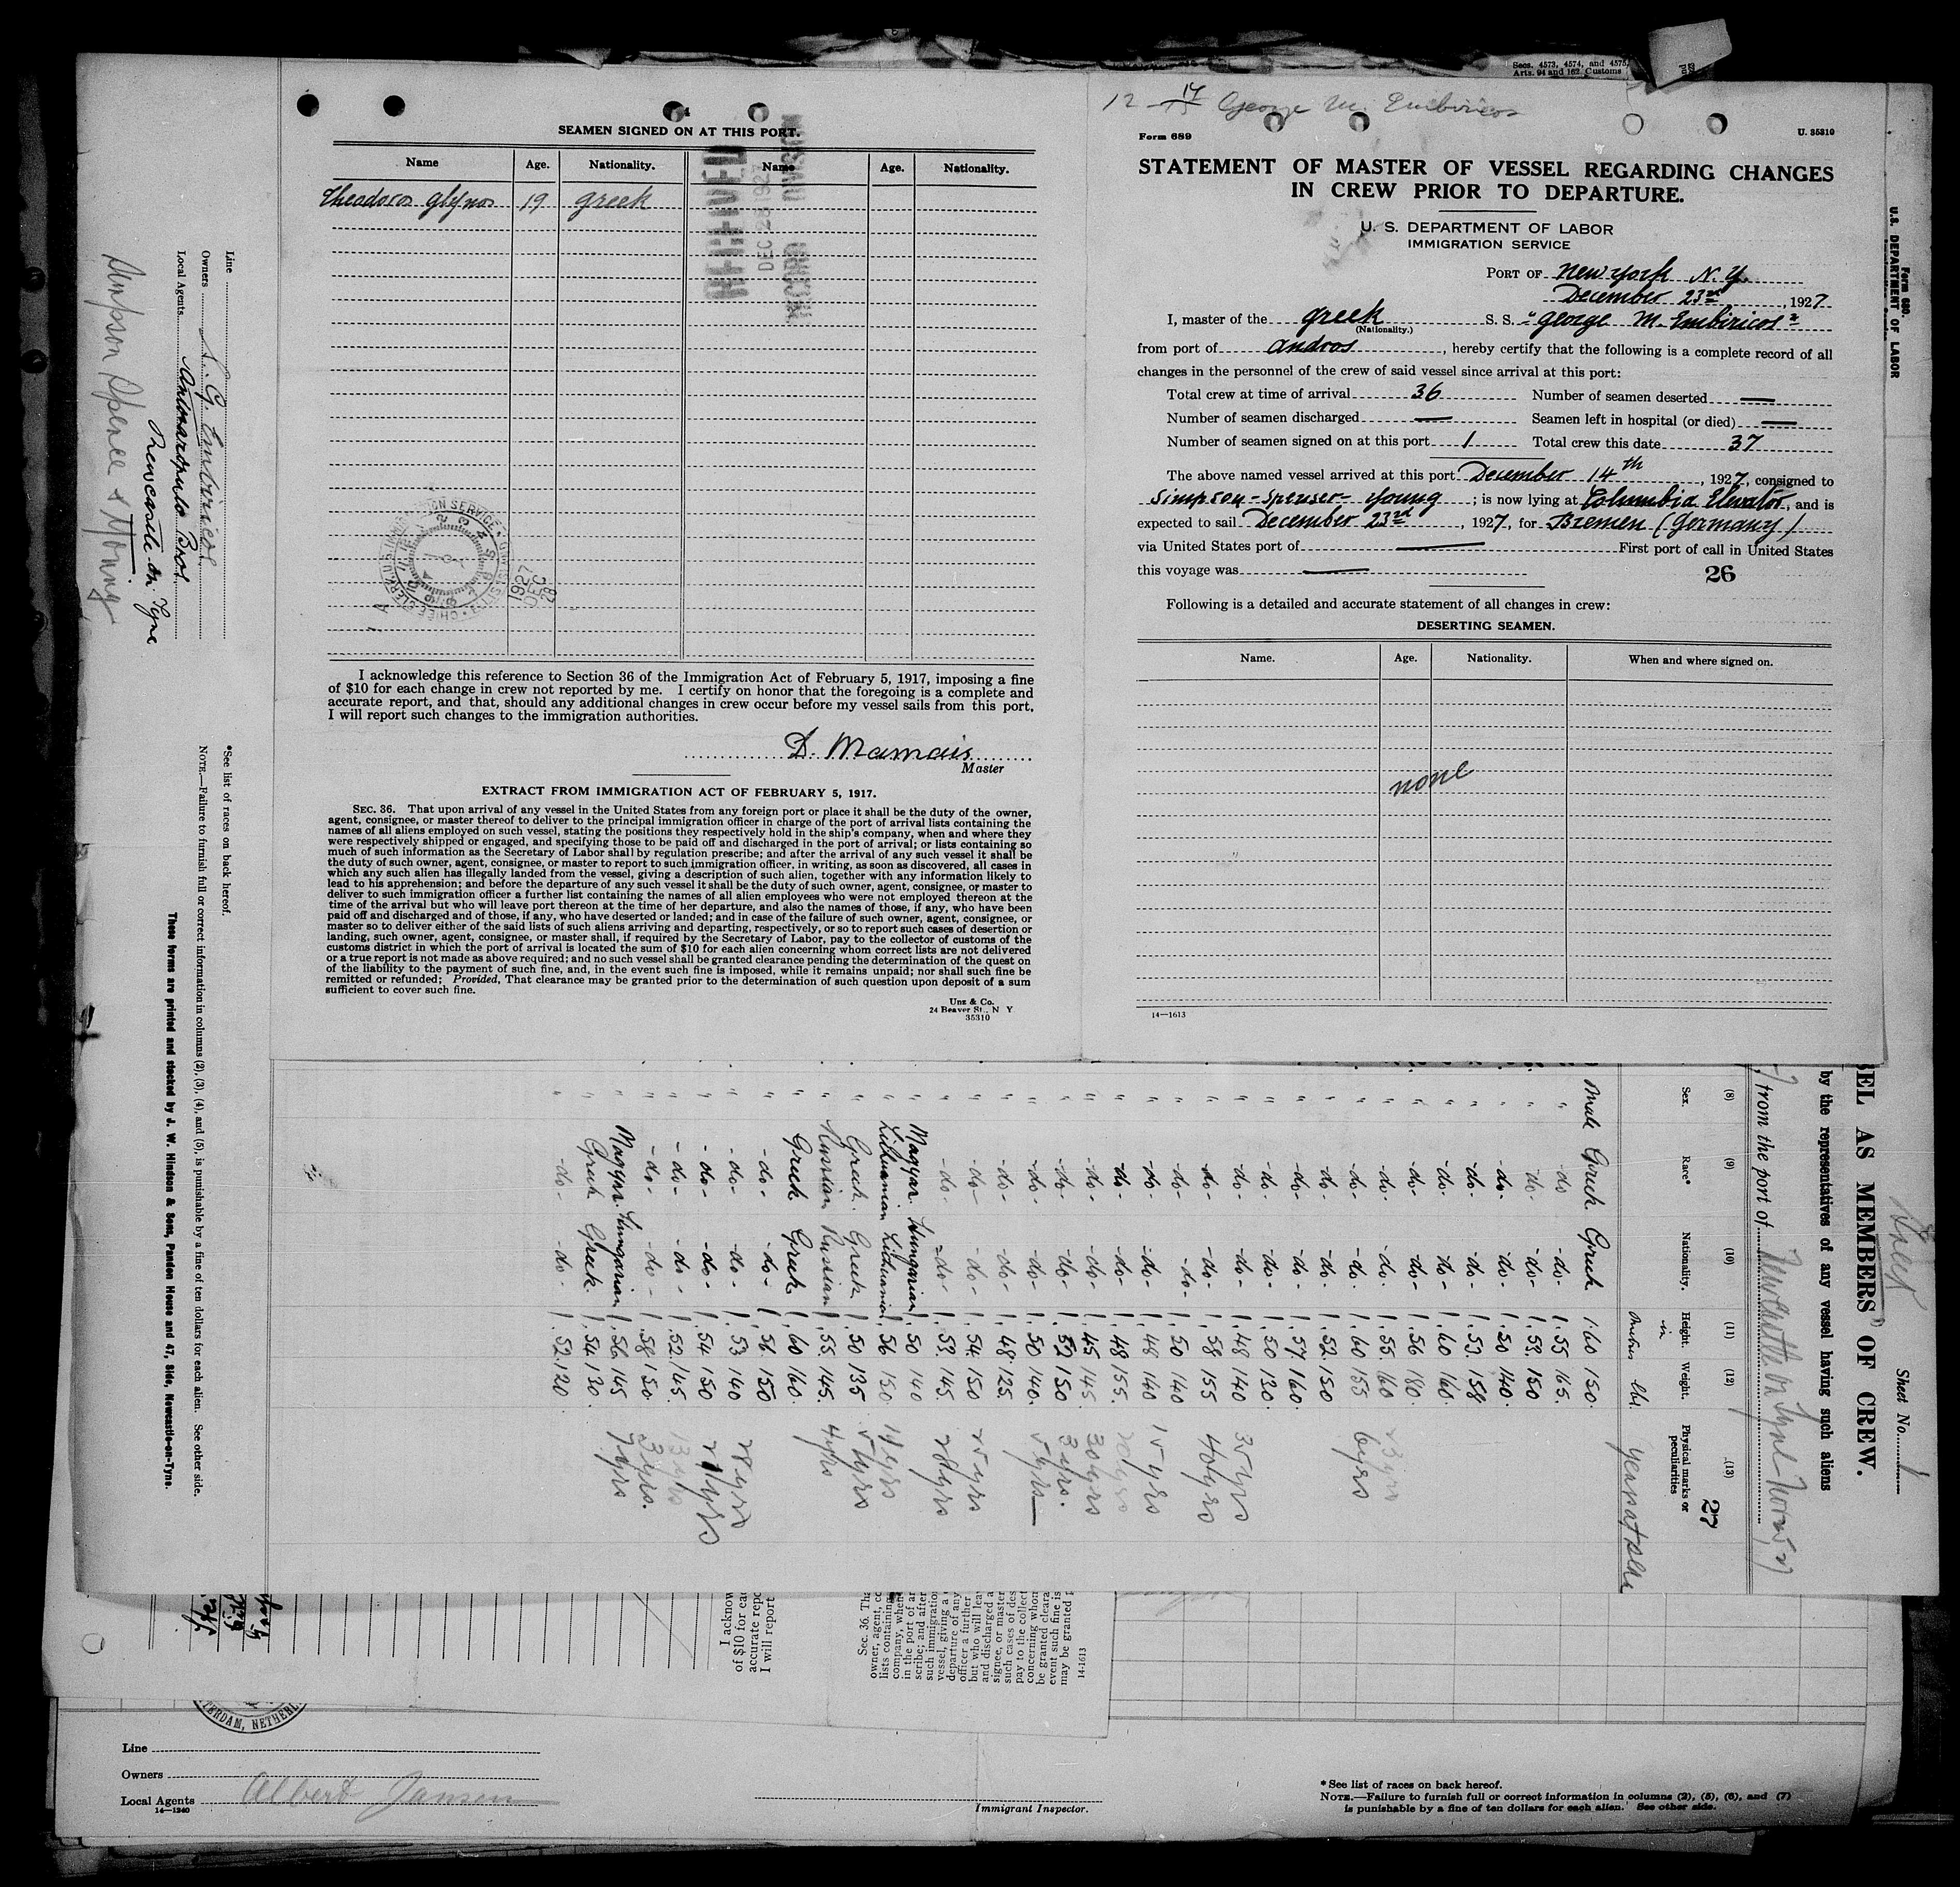 Secs. 4573, 4574, and 4575,
Arts. 94 and 162, Customs
SEAMEN SIGNED ON AT THIS PORT.
Name Age. Nationality. Name Age. Nationality.
Theodoros glynos 19 greek
RECEIVED
DEC 28 1927
I acknowledge this reference to Section 36 of the Immigration Act of February 5, 1917, imposing a fine
of $10 for each change in crew not reported by me. I certify on honor that the foregoing is a complete and
accurate report, and that, should any additional changes in crew occur before my vessel sails from this port,
I will report such changes to the immigration authorities.
D. Mamais
Master
EXTRACT FROM IMMIGRATION ACT OF FEBRUARY 5, 1917.
SEC. 36. That upon arrival of any vessel in the United States from any foreign port or place it shall be the duty of the owner,
agent, consignee, or master thereof to deliver to the principal immigration officer in charge of the port of arrival lists containing the
names of all aliens employed on such vessel, stating the positions they respectively hold in the ship's company, when and where they
were respectively shipped or engaged, and specifying those to be paid off and discharged in the port of arrival; or lists containing so
much of such information as the Secretary of Labor shall by regulation prescribe; and after the arrival of any such vessel it shall be
the duty of such owner, agent, consignee, or master to report to such immigration officer, in writing, as soon as discovered, all cases in
which any such alien has illegally landed from the vessel, giving a description of such alien, together with any information likely to
lead to his apprehension; and before the departure of any such vessel it shall be the duty of such owner, agent, consignee, or master to
deliver to such immigration officer a further list containing the names of all alien employees who were not employed thereon at the
time of the arrival but who will leave port thereon at the time of her departure, and also the names of those, if any, who have been
paid off and discharged and of those, if any, who have deserted or landed; and in case of the failure of such owner, agent, consignee, or
master so to deliver either of the said lists of such aliens arriving and departing, respectively, or so to report such cases of desertion or
landing, such owner, agent, consignee, or master shall, if required by the Secretary of Labor, pay to the collector of customs of the
customs district in which the port of arrival is located the sum of $10 for each alien concerning whom correct lists are not delivered
or a true report is not made as above required; and no such vessel shall be granted clearance pending the determination of the quest on
of the liability to the payment of such fine, and, in the event such fine is imposed, while it remains unpaid; nor shall such fine be
remitted or refunded; Provided, That clearance may be granted prior to the determination of such question upon deposit of a sum
sufficient to cover such fine.
Unz & Co.
24 Beaver St., N Y
35310
12 – 17 George M. Embiricos
Form 689
U. 35310
STATEMENT OF MASTER OF VESSEL REGARDING CHANGES
IN CREW PRIOR TO DEPARTURE.
U. S. DEPARTMENT OF LABOR
IMMIGRATION SERVICE
PORT OF New York N. Y.
December 23rd, 1927
I, master of the greek S. S. "George M. Embiricos"
(Nationality.)
from port of andros, hereby certify that the following is a complete record of all
changes in the personnel of the crew of said vessel since arrival at this port:
Total crew at time of arrival 36 Number of seamen deserted —
Number of seamen discharged — Seamen left in hospital (or died) —
Number of seamen signed on at this port 1 Total crew this date 37
The above named vessel arrived at this port December 14th, 1927, consigned to
Simpson-Spenser-Young; is now lying at Columbia Elevator, and is
expected to sail December 23rd, 1927, for Bremen (Germany)
via United States port of — First port of call in United States
this voyage was —
26
Following is a detailed and accurate statement of all changes in crew:
DESERTING SEAMEN.
Name. Age. Nationality. When and where signed on.
none
14—1613
Form 680.
U.S. DEPARTMENT OF LABOR
Line
Owners G. Embiricos
Local Agents Antonaropulo Bros
Newcastle-on-Tyne
Simpson Spence & Young
*See list of races on back hereof.
NOTE.—Failure to furnish full or correct information in columns (2), (3), (4), and (5), is punishable by a fine of ten dollars for each alien. See other side.
These forms are printed and stocked by J. W. Hindson & Sons, Pandon House and 47, Side, Newcastle-on-Tyne.
Sheet No. 1
SEL AS MEMBERS OF CREW.
by the representatives of any vessel having such aliens
from the port of Newcastle on Tyne
27
(8) (9) (10) (11) (12) (13)
Sex. Race* Nationality. Height. Weight. Physical marks or peculiarities
in lbs. years at sea
Male Greek Greek 1.60 150.
" do -do- 1.55 165.
" -do- -do- 1.53. 150
" -do- -do- 1.50 140.
" -do- -do- 1.53. 158
" -do- -do- 1.60 160.
" -do- -do- 1.56 180.
" -do- -do- 1.55. 160
" -do- -do- 1.60 155 6 yrs
" -do- -do- 1.52. 150
" -do- -do- 1.57 160.
" -do- -do- 1.50 130.
" -do- -do- 1.48 140 35 yrs
" -do- -do- 1.58 155 40 yrs
" -do- -do- 1.50 140
" -do- -do- 1.48 140 15 yrs
" -do- -do- 1.48 155.
" -do- -do- 1.45 145 30 yrs
" -do- -do- 1.52 150 3 yrs.
" -do- -do- 1.50 140. 5 yrs
" -do- -do- 1.48. 125
" -do- -do- 1.54. 150 25 yrs
" -do- -do- 1.53. 145 28 yrs
" Magyar Hungarian 1.50 140
" Lithuanian Lithuanian 1.56 150 11 yrs
" Greek Greek 1.50 135 5 yrs
" Russian Russian 1.55. 145. 4 yrs
" Greek Greek 1.60 160.
" -do- -do- 1.56 150
" -do- -do- 1.53 140 28 yrs
" -do- -do- 1.54 150
" -do- -do- 1.52. 145.
" -do- -do- 1.58 150. 3 yrs.
" Magyar Hungarian 1.56 145 7 yrs
" Greek Greek 1.54 130.
" -do- -do- 1.52. 120
I acknow
of $10 for eac
accurate repo
I will report
Sec. 36. Tha
owner, agent, co
lists containing
company, when
in the port of ar
scribe; and after
such immigration
vessel, giving a
departure of any
officer a further
but who will lea
and discharged a
signee, or master
such cases of des
pay to the collect
concerning whom
be granted cleara
event such fine is
may be granted p
14-1613
TERDAM, NETHERL
Line
Owners
Local Agents Albert Jansen
14—1240
Immigrant Inspector.
*See list of races on back hereof.
NOTE.—Failure to furnish full or correct information in columns (2), (5), (6), and (7)
is punishable by a fine of ten dollars for each alien. See other side.